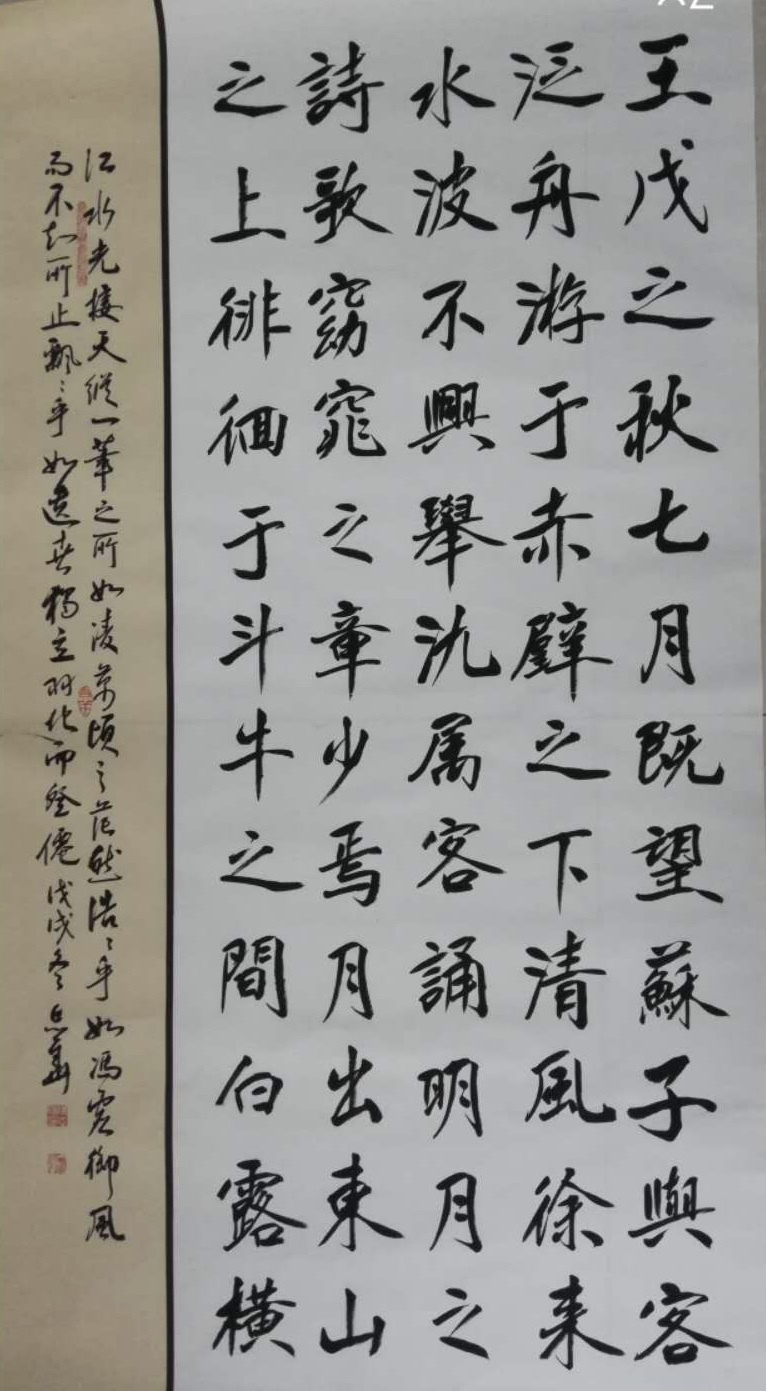 壬戌之秋七月既望蘇子與客
泛舟游于赤壁之下清風徐来
水波不興舉氿属客誦明月之
詩歌窈窕之章少焉月出東山
之上徘徊于斗牛之間白露横
江水光接天縱一葦之所如凌萬頃之茫然浩〻乎如馮虚御風
而不知所止飄〻乎如遗世獨立羽化而登僊戊戌冬